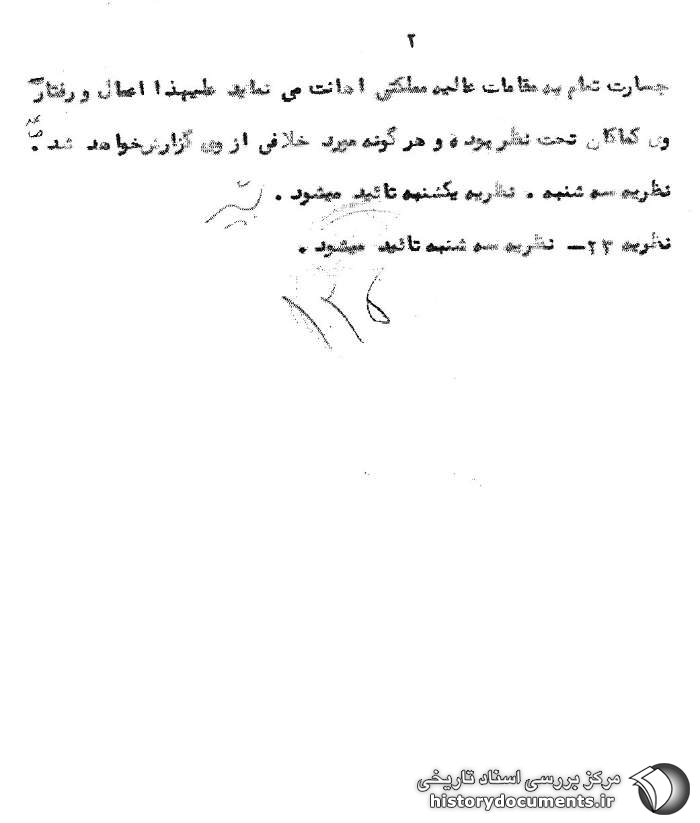 ۲
جسارت تمام به مقامات عالیه مملکتی اهانت می نماید علیهذا اعمال و رفتار
وی کماکان تحت نظر بوده و هرگونه مورد خلافی از وی گزارش خواهد شد .
نظریه سه شنبه . نظریه یکشنبه تائید میشود .
نظریه ۲۳ــ نظریه سه شنبه تائید میشود .
مرکز بررسی اسناد تاریخی
historydocuments.ir